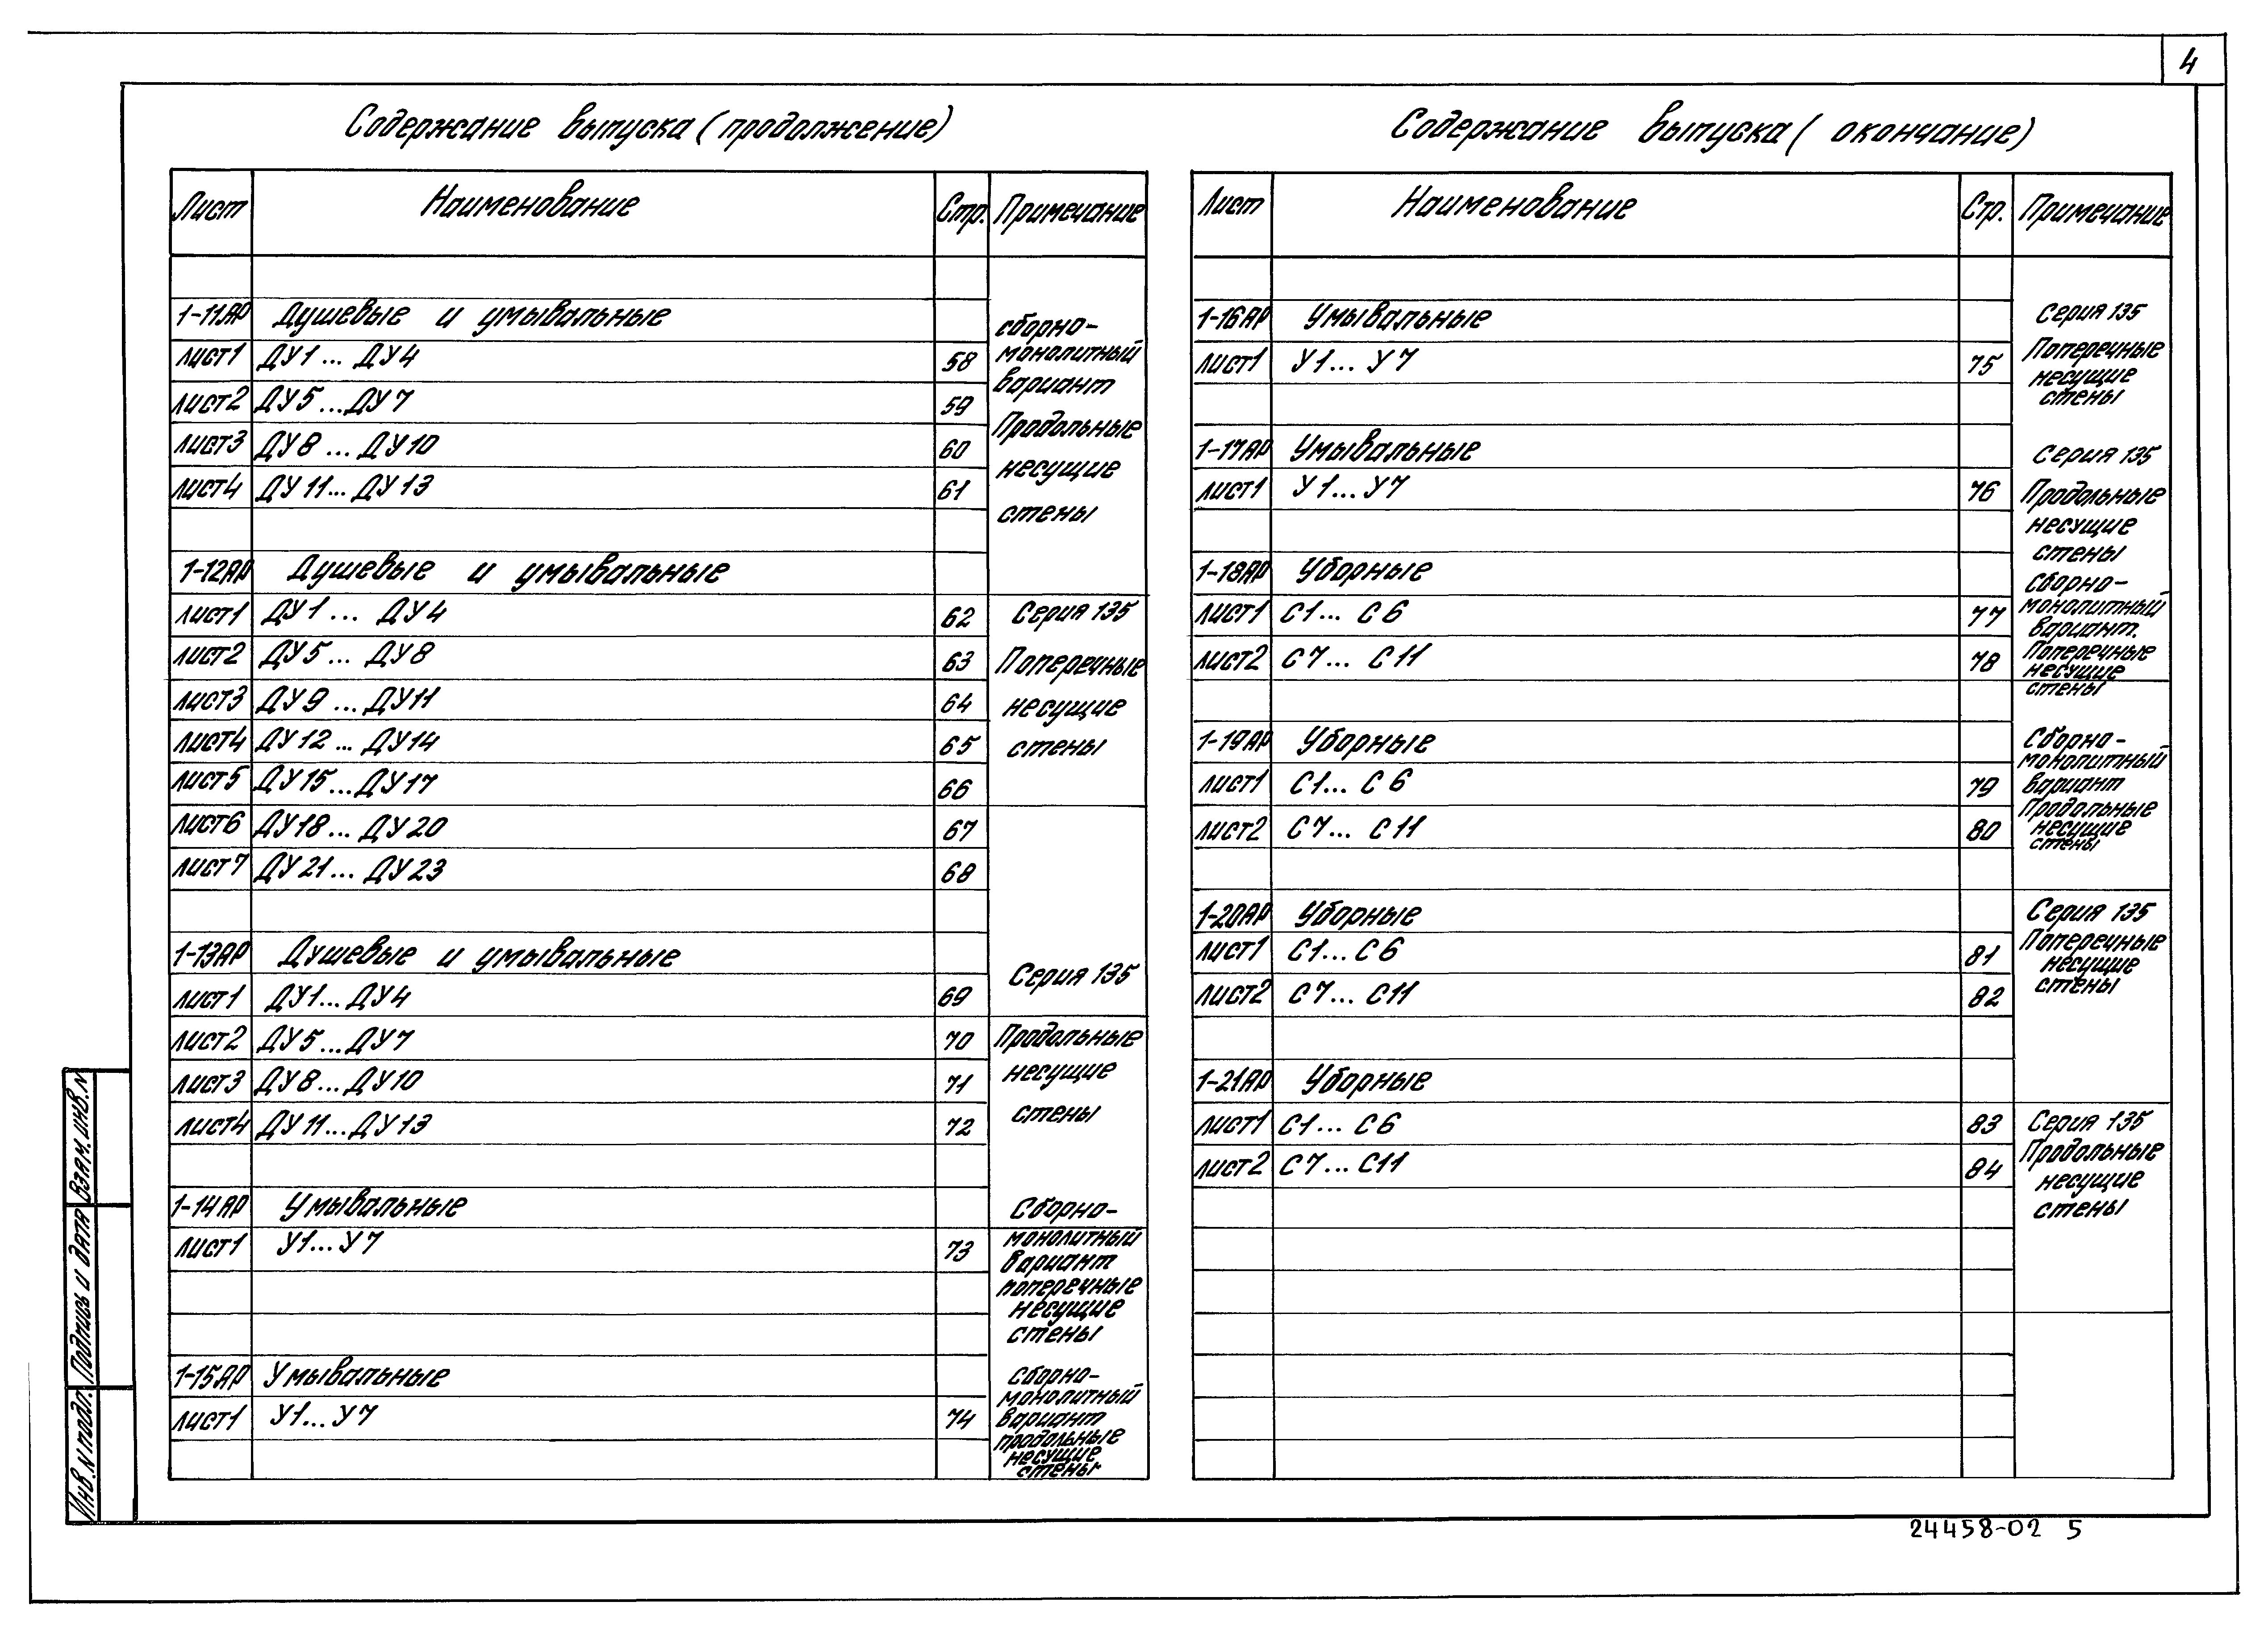 4
Содержание выпуска (продолжение)
Лист Наименование Стр. Примечание
1-11АР Душевые и умывальные
сборно-
Лист1 ДУ1... ДУ4 58 монолитный
вариант
Лист2 ДУ5...ДУ7 59
Продольные
Лист3 ДУ8 ... ДУ10 60
несущие
Лист4 ДУ11... ДУ13 61
стены
1-12АР Душевые и умывальные
Лист1 ДУ1... ДУ4 62 Серия 135
Лист2 ДУ5... ДУ8 63 Поперечные
Лист3 ДУ9 ... ДУ11 64 несущие
Лист4 ДУ12 ... ДУ14 65 стены
Лист5 ДУ15...ДУ17 66
Лист6 ДУ18... ДУ20 67
Лист7 ДУ21... ДУ23 68
1-13АР Душевые и умывальные
Серия 135
Лист1 ДУ1... ДУ4 69
Лист2 ДУ5...ДУ7 70 Продольные
Лист3 ДУ8...ДУ10 71 несущие
Лист4 ДУ11...ДУ13 72 стены
1-14АР Умывальные Сборно-
Лист1 У1...У7 73 монолитный
вариант
поперечные
несущие
стены
1-15АР Умывальные сборно-
монолитный
Лист1 У1...У7 74 вариант
продольные
несущие
стены
Содержание выпуска ( окончание)
Лист Наименование Стр. Примечание
1-16АР Умывальные Серия 135
Лист1 У1... У7 75 Поперечные
несущие
стены
1-17АР Умывальные Серия 135
Лист1 У1...У7 76 Продольные
несущие
стены
1-18АР Уборные сборно-
Лист1 С1... С6 77 монолитный
вариант.
Лист2 С7... С11 78 Поперечные
несущие
стены
1-19АР Уборные Сборно-
монолитный
Лист1 С1... С6 79 вариант
Продольные
Лист2 С7... С11 80 несущие
стены
1-20АР Уборные Серия 135
Лист1 С1...С6 81 Поперечные
несущие
Лист2 С7... С11 82 стены
1-21АР Уборные
Лист1 С1... С6 83 Серия 135
Лист2 С7... С11 84 Продольные
несущие
стены
Инв.N подл. Подпись и дата Взам.инв.N
24458-02 5